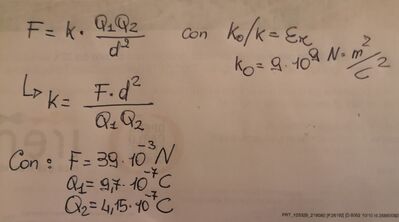 F = k · Q₁Q₂ / d² con k₀/k = εr
k₀ = 9 · 10⁹ N · m²/C²
↳ k = F · d² / Q₁Q₂
Con : F = 39 · 10⁻³ N
Q₁ = 9,7 · 10⁻⁷ C
Q₂ = 4,15 · 10⁻⁷ C